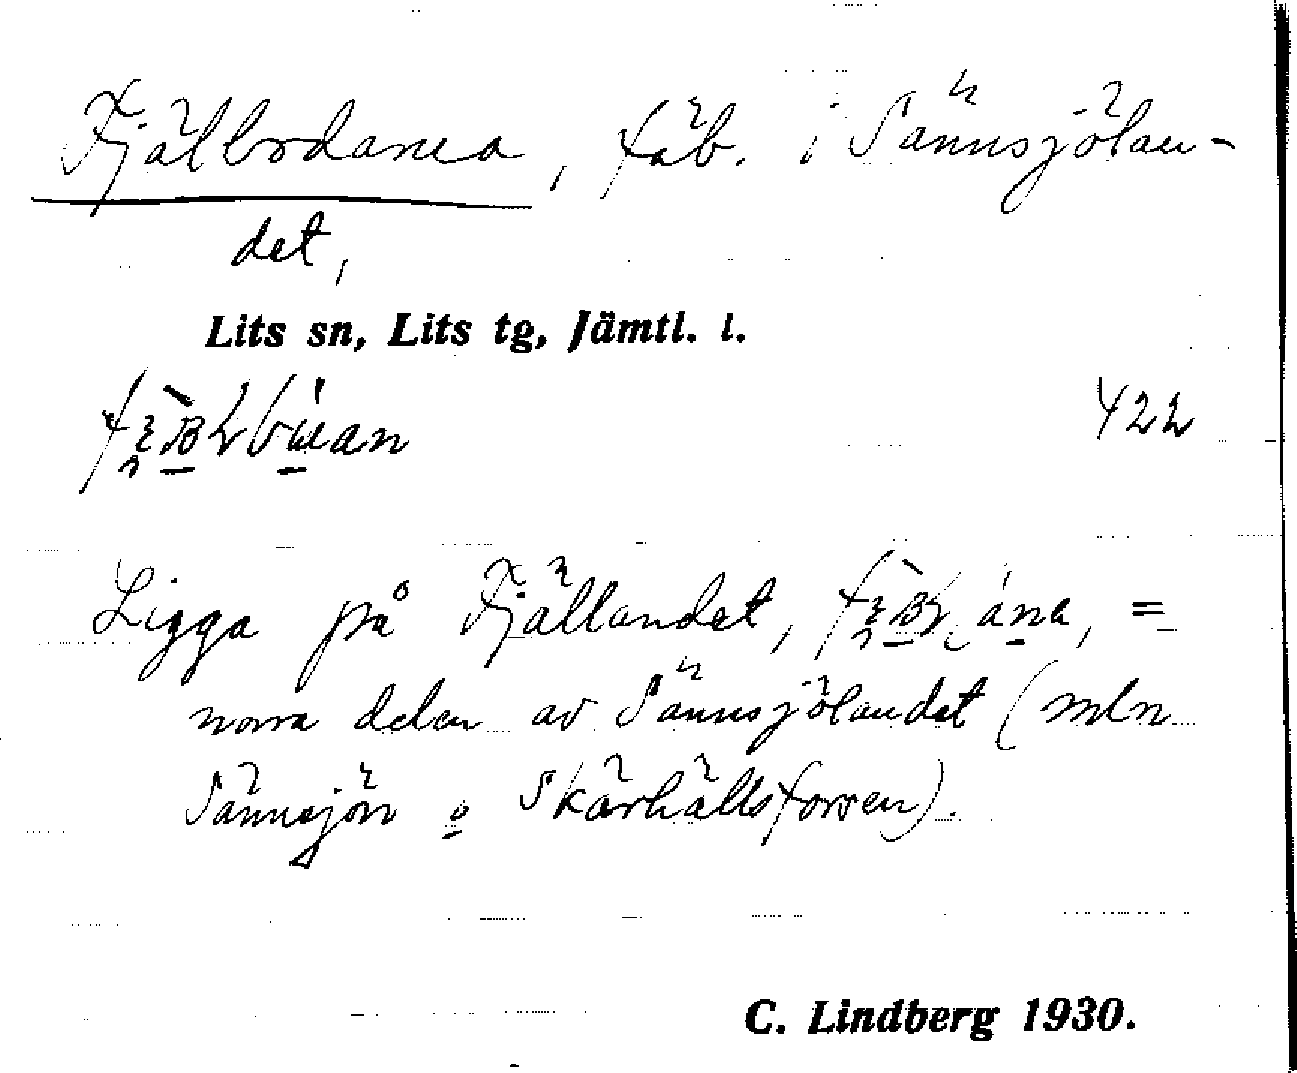 Fjälbodarna, fäb. i Sännsjölan-
det,
Lits sn, Lits tg, Jämtl. l.
422
Ligga på Fjällandet, =
norra delen av Sännsjölandet (mln
Sännsjön o Skärhällsforsen).
C. Lindberg 1930.